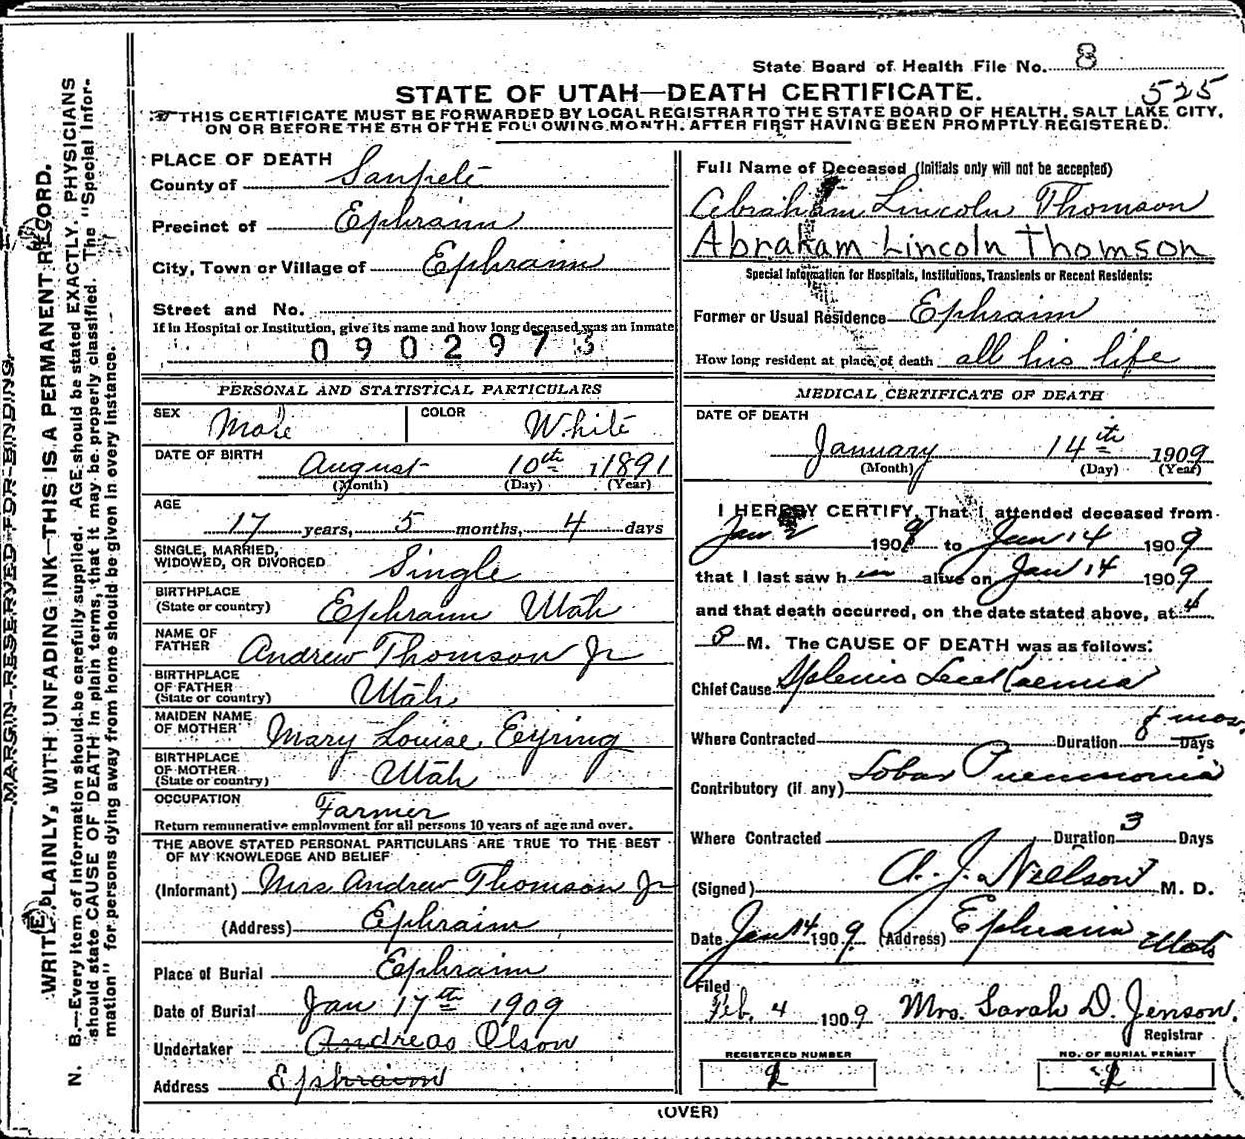 State Board of Health File No. 8
525
STATE OF UTAH—DEATH CERTIFICATE.
THIS CERTIFICATE MUST BE FORWARDED BY LOCAL REGISTRAR TO THE STATE BOARD OF HEALTH, SALT LAKE CITY,
ON OR BEFORE THE 5TH OF THE FOLLOWING MONTH, AFTER FIRST HAVING BEEN PROMPTLY REGISTERED.
MARGIN RESERVED FOR BINDING.
WRITE PLAINLY, WITH UNFADING INK—THIS IS A PERMANENT RECORD.
N. B.—Every item of information should be carefully supplied. AGE should be stated EXACTLY. PHYSICIANS
should state CAUSE OF DEATH in plain terms, that it may be properly classified. The "Special Infor-
mation" for persons dying away from home should be given in every instance.
PLACE OF DEATH
County of Sanpete
Precinct of Ephraim
City, Town or Village of Ephraim
Street and No.
If in Hospital or Institution, give its name and how long deceased was an inmate
0902973
PERSONAL AND STATISTICAL PARTICULARS
SEX Male COLOR White
DATE OF BIRTH August 10th 1891
(Month) (Day) (Year)
AGE
17 years, 5 months, 4 days
SINGLE, MARRIED,
WIDOWED, OR DIVORCED Single
BIRTHPLACE
(State or country) Ephraim Utah
NAME OF
FATHER Andrew Thomson Jr
BIRTHPLACE
OF FATHER
(State or country) Utah
MAIDEN NAME
OF MOTHER Mary Louise Eyring
BIRTHPLACE
OF MOTHER
(State or country) Utah
OCCUPATION Farmer
Return remunerative employment for all persons 10 years of age and over.
THE ABOVE STATED PERSONAL PARTICULARS ARE TRUE TO THE BEST
OF MY KNOWLEDGE AND BELIEF
(Informant) Mrs Andrew Thomson Jr
(Address) Ephraim
Place of Burial Ephraim
Date of Burial Jan 17th 1909
Undertaker Andreas Olson
Address Ephraim
Full Name of Deceased (Initials only will not be accepted)
Abraham Lincoln Thomson
Abraham Lincoln Thomson
Special Information for Hospitals, Institutions, Transients or Recent Residents:
Former or Usual Residence Ephraim
How long resident at place of death all his life
MEDICAL CERTIFICATE OF DEATH
DATE OF DEATH
January 14th 1909
(Month) (Day) (Year)
I HEREBY CERTIFY, That I attended deceased from
Jan 1909 to Jan 14 1909
that I last saw him alive on Jan 14 1909
and that death occurred, on the date stated above, at 4
P M. The CAUSE OF DEATH was as follows:
Chief Cause Splenic Leukaemia
Where Contracted Duration mos. Days
Contributory (if any) Lobar Pneumonia
Where Contracted Duration 3 Days
(Signed) A. J. Nielson M. D.
Date Jan 14 1909 (Address) Ephraim Utah
Filed
Feb. 4 1909 Mrs. Sarah D. Jenson.
Registrar
REGISTERED NUMBER NO. OF BURIAL PERMIT
(OVER)